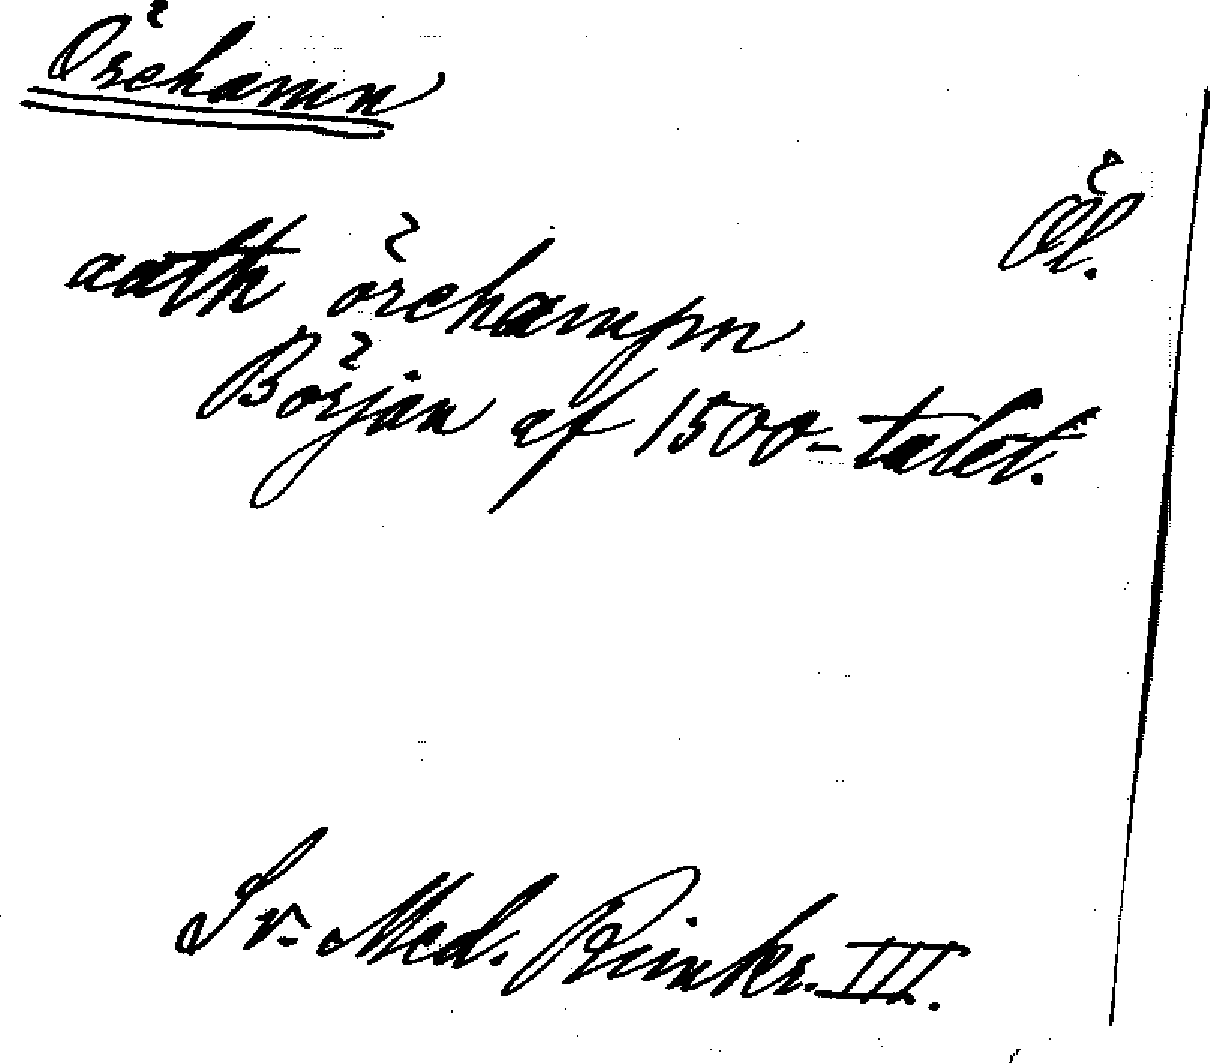 Örehamn
Öl.
aath örehampn
Början af 1500-talet.
Sv. Med. Rimkr. III.